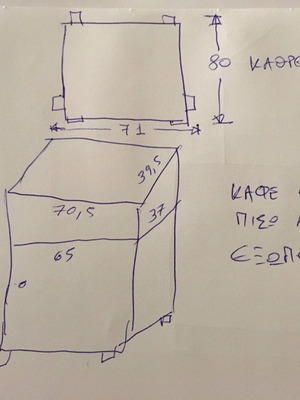 80 ΚΑΘΡΕ
71
39,5
70,5
37
65
ΚΑΦΕ
ΠΙΣΩ
ΕΞΩΠ